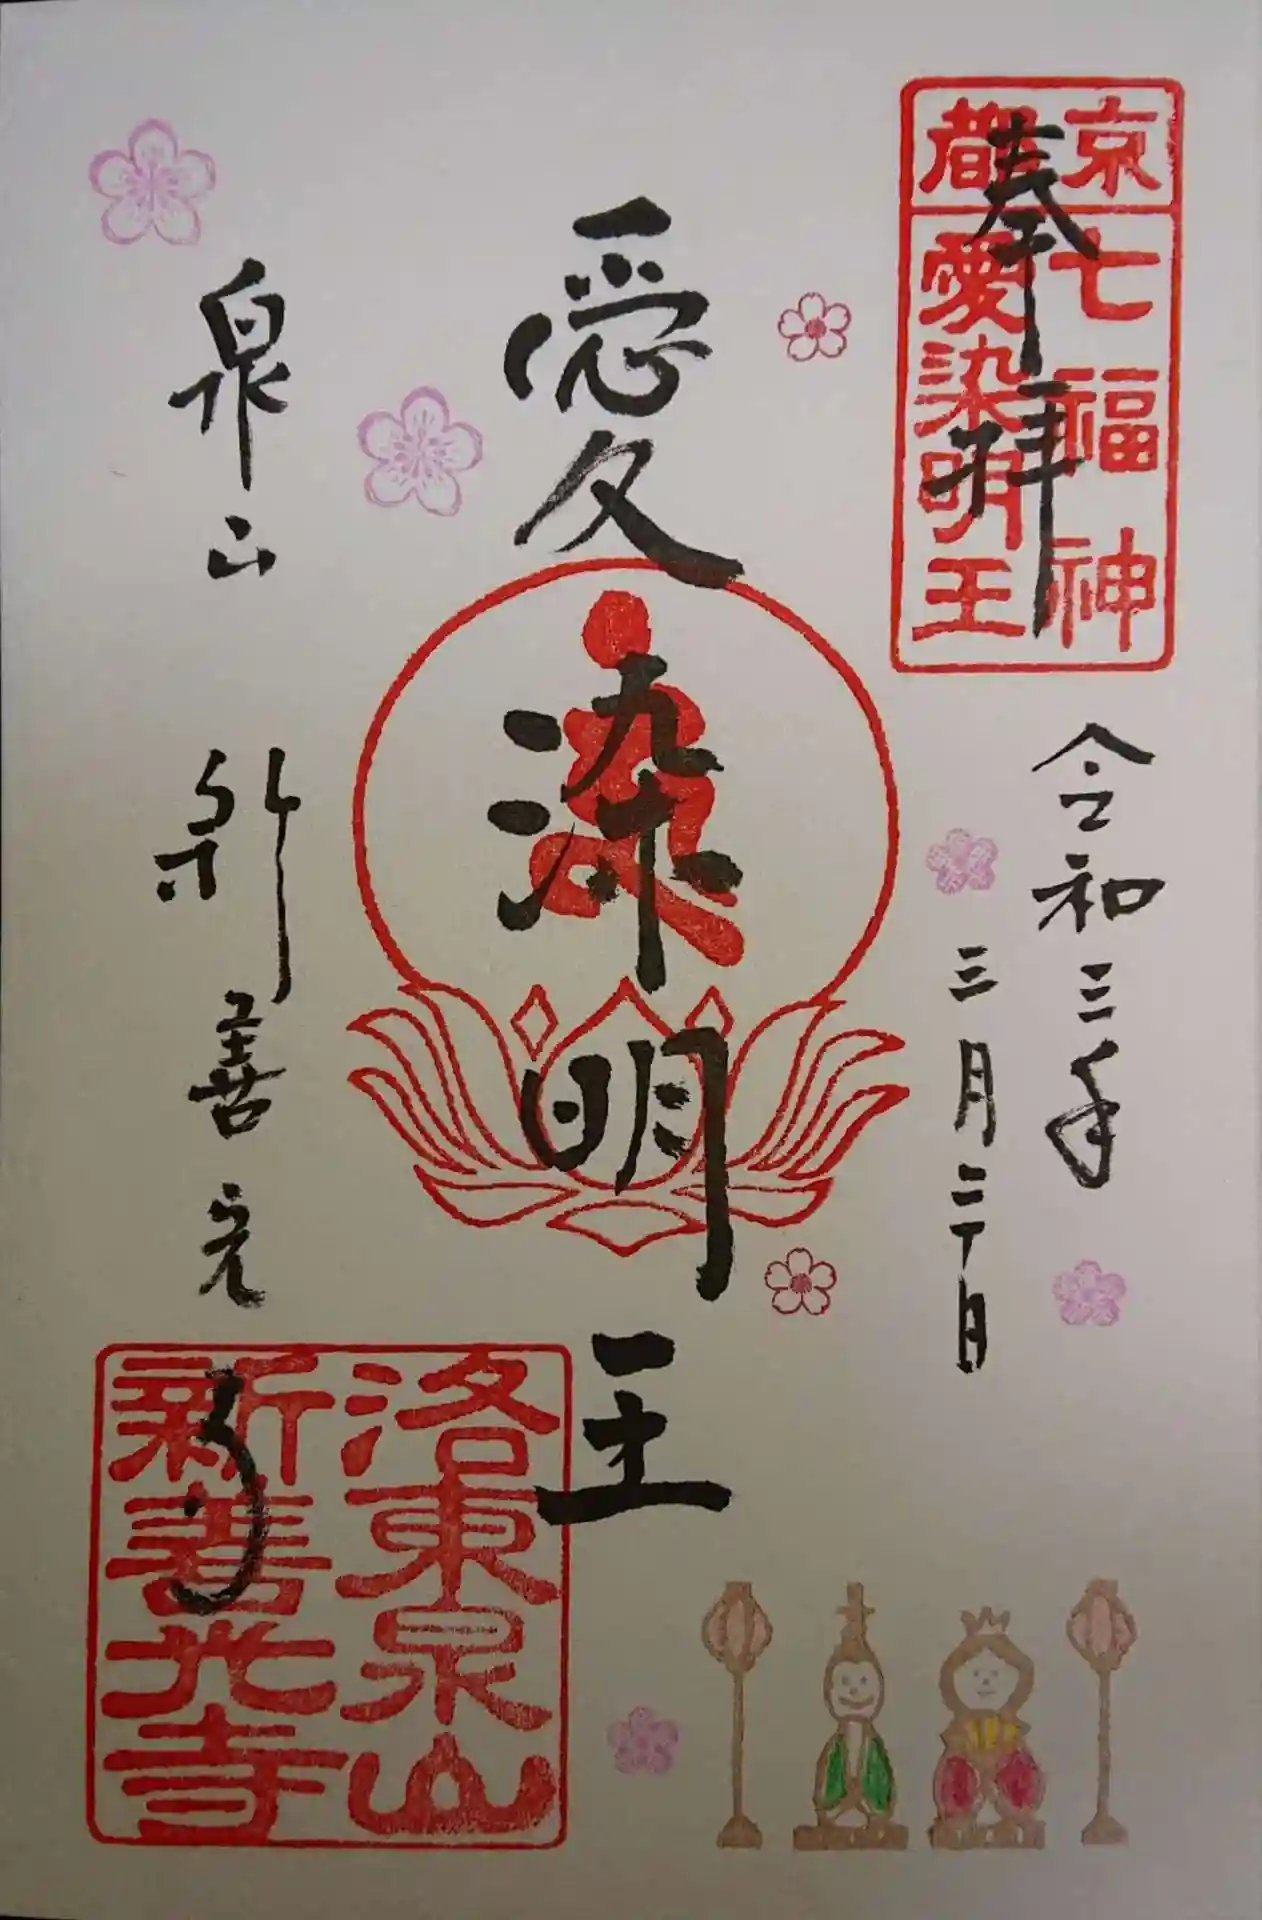 奉拝
京都
七福神
愛染明王
令和三年
三月三十日
愛染明王
泉山
新善光寺
洛東泉山
新善光寺